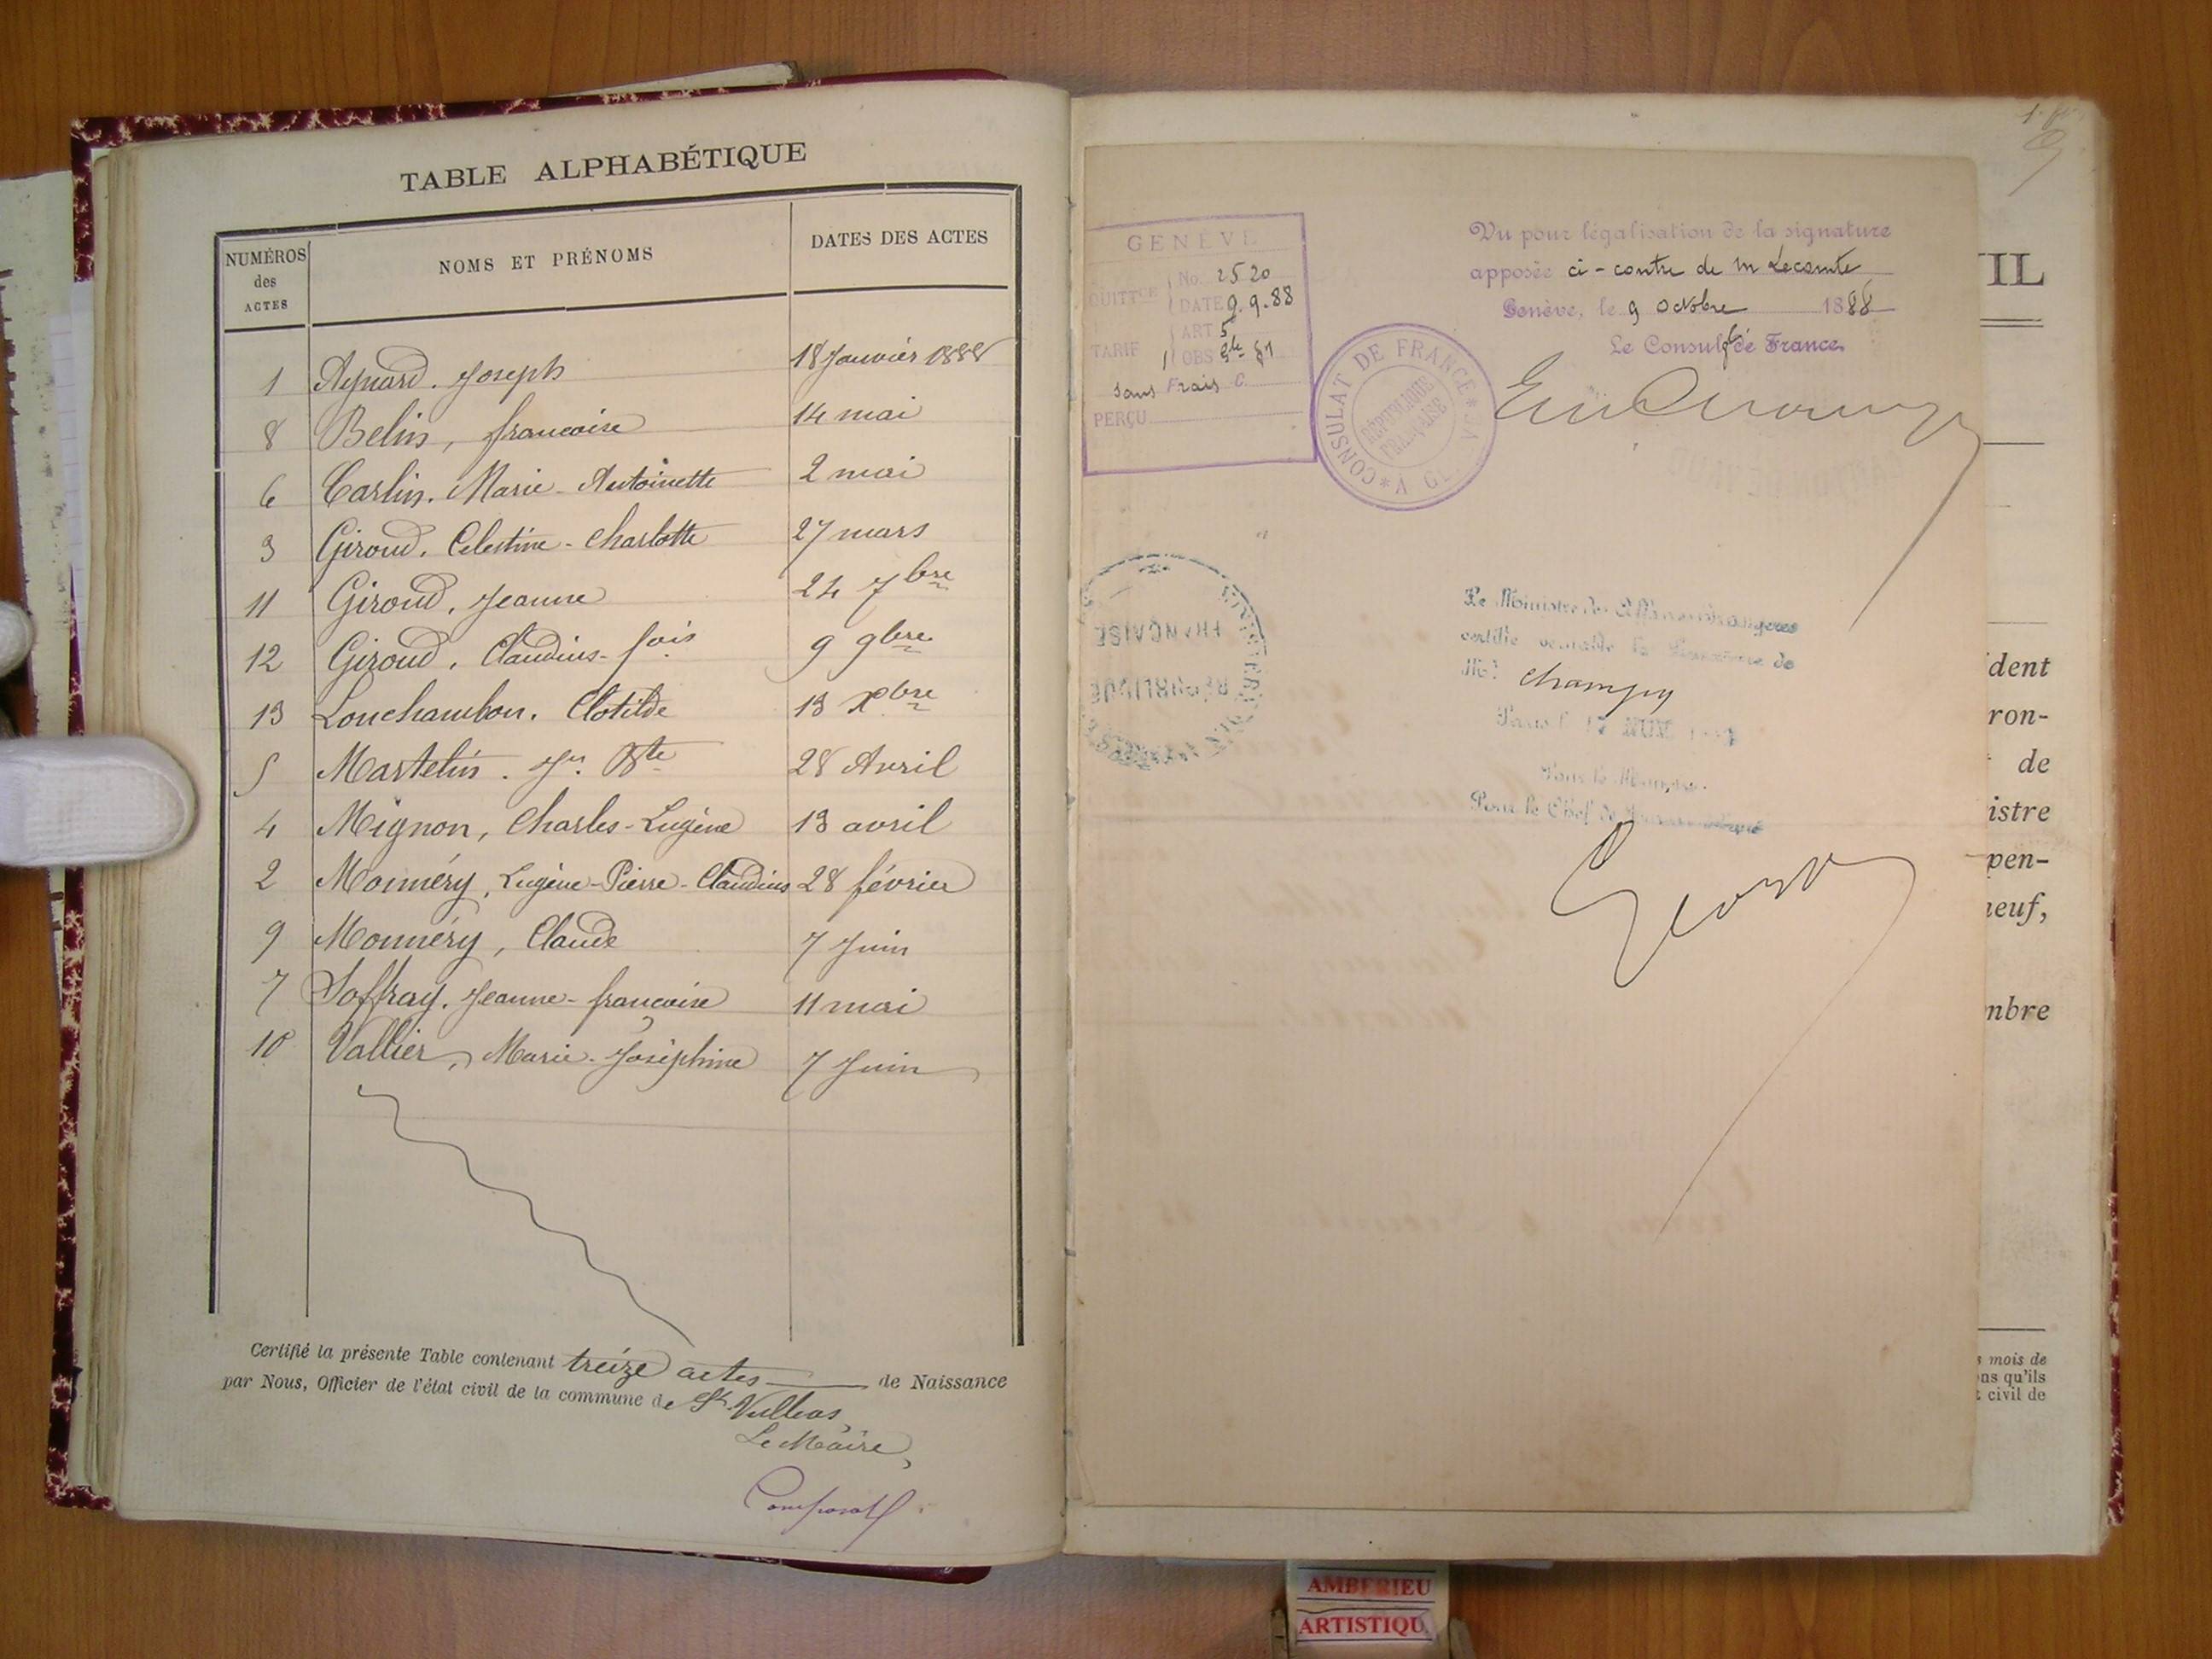 TABLE ALPHABÉTIQUE
NUMÉROS des ACTES NOMS ET PRÉNOMS DATES DES ACTES
1 Aynard. Joseph 18 Janvier 1888
8 Belin, francoise 14 mai
6 Carlin. Marie-Antoinette 2 mai
3 Giroud. Celestine-Charlotte 27 mars
11 Giroud. Jeanne 24 7bre
12 Giroud. Claudius-fois 9 9bre
13 Louchambon. Clotilde 13 Xbre
5 Martelin. Jn. Bte 28 Avril
4 Mignon, Charles-Eugène 13 avril
2 Monnéry, Eugène-Pierre-Claudius 28 février
9 Monnéry, Claude 7 Juin
7 Soffray. Jeanne-françoise 11 mai
10 Vallier, Marie-Joséphine 7 Juin
Certifié la présente Table contenant treize actes de Naissance
par Nous, Officier de l'état civil de la commune de St. Vulbas,
Le Maire,
GENÈVE
QUITTCE No. 2520
DATE 9.9.88
TARIF ART 5
OBS
sans Frais
PERÇU
CONSULAT DE FRANCE
RÉPUBLIQUE
FRANÇAISE
Vu pour légalisation de la signature
apposée ci-contre de M Lecomte
Genève, le 9 Octobre 1888
Le Consul de France
FRANÇAISE
RÉPUBLIQUE
Le Ministre des Affaires étrangères
certifie véritable la signature de
M. Champy
Paris
Pour le Ministre
Pour le Chef de
IL
dent
ron-
de
istre
pen-
neuf,
mbre
mois de
as qu'ils
civil de
AMBERIEU
ARTISTIQU